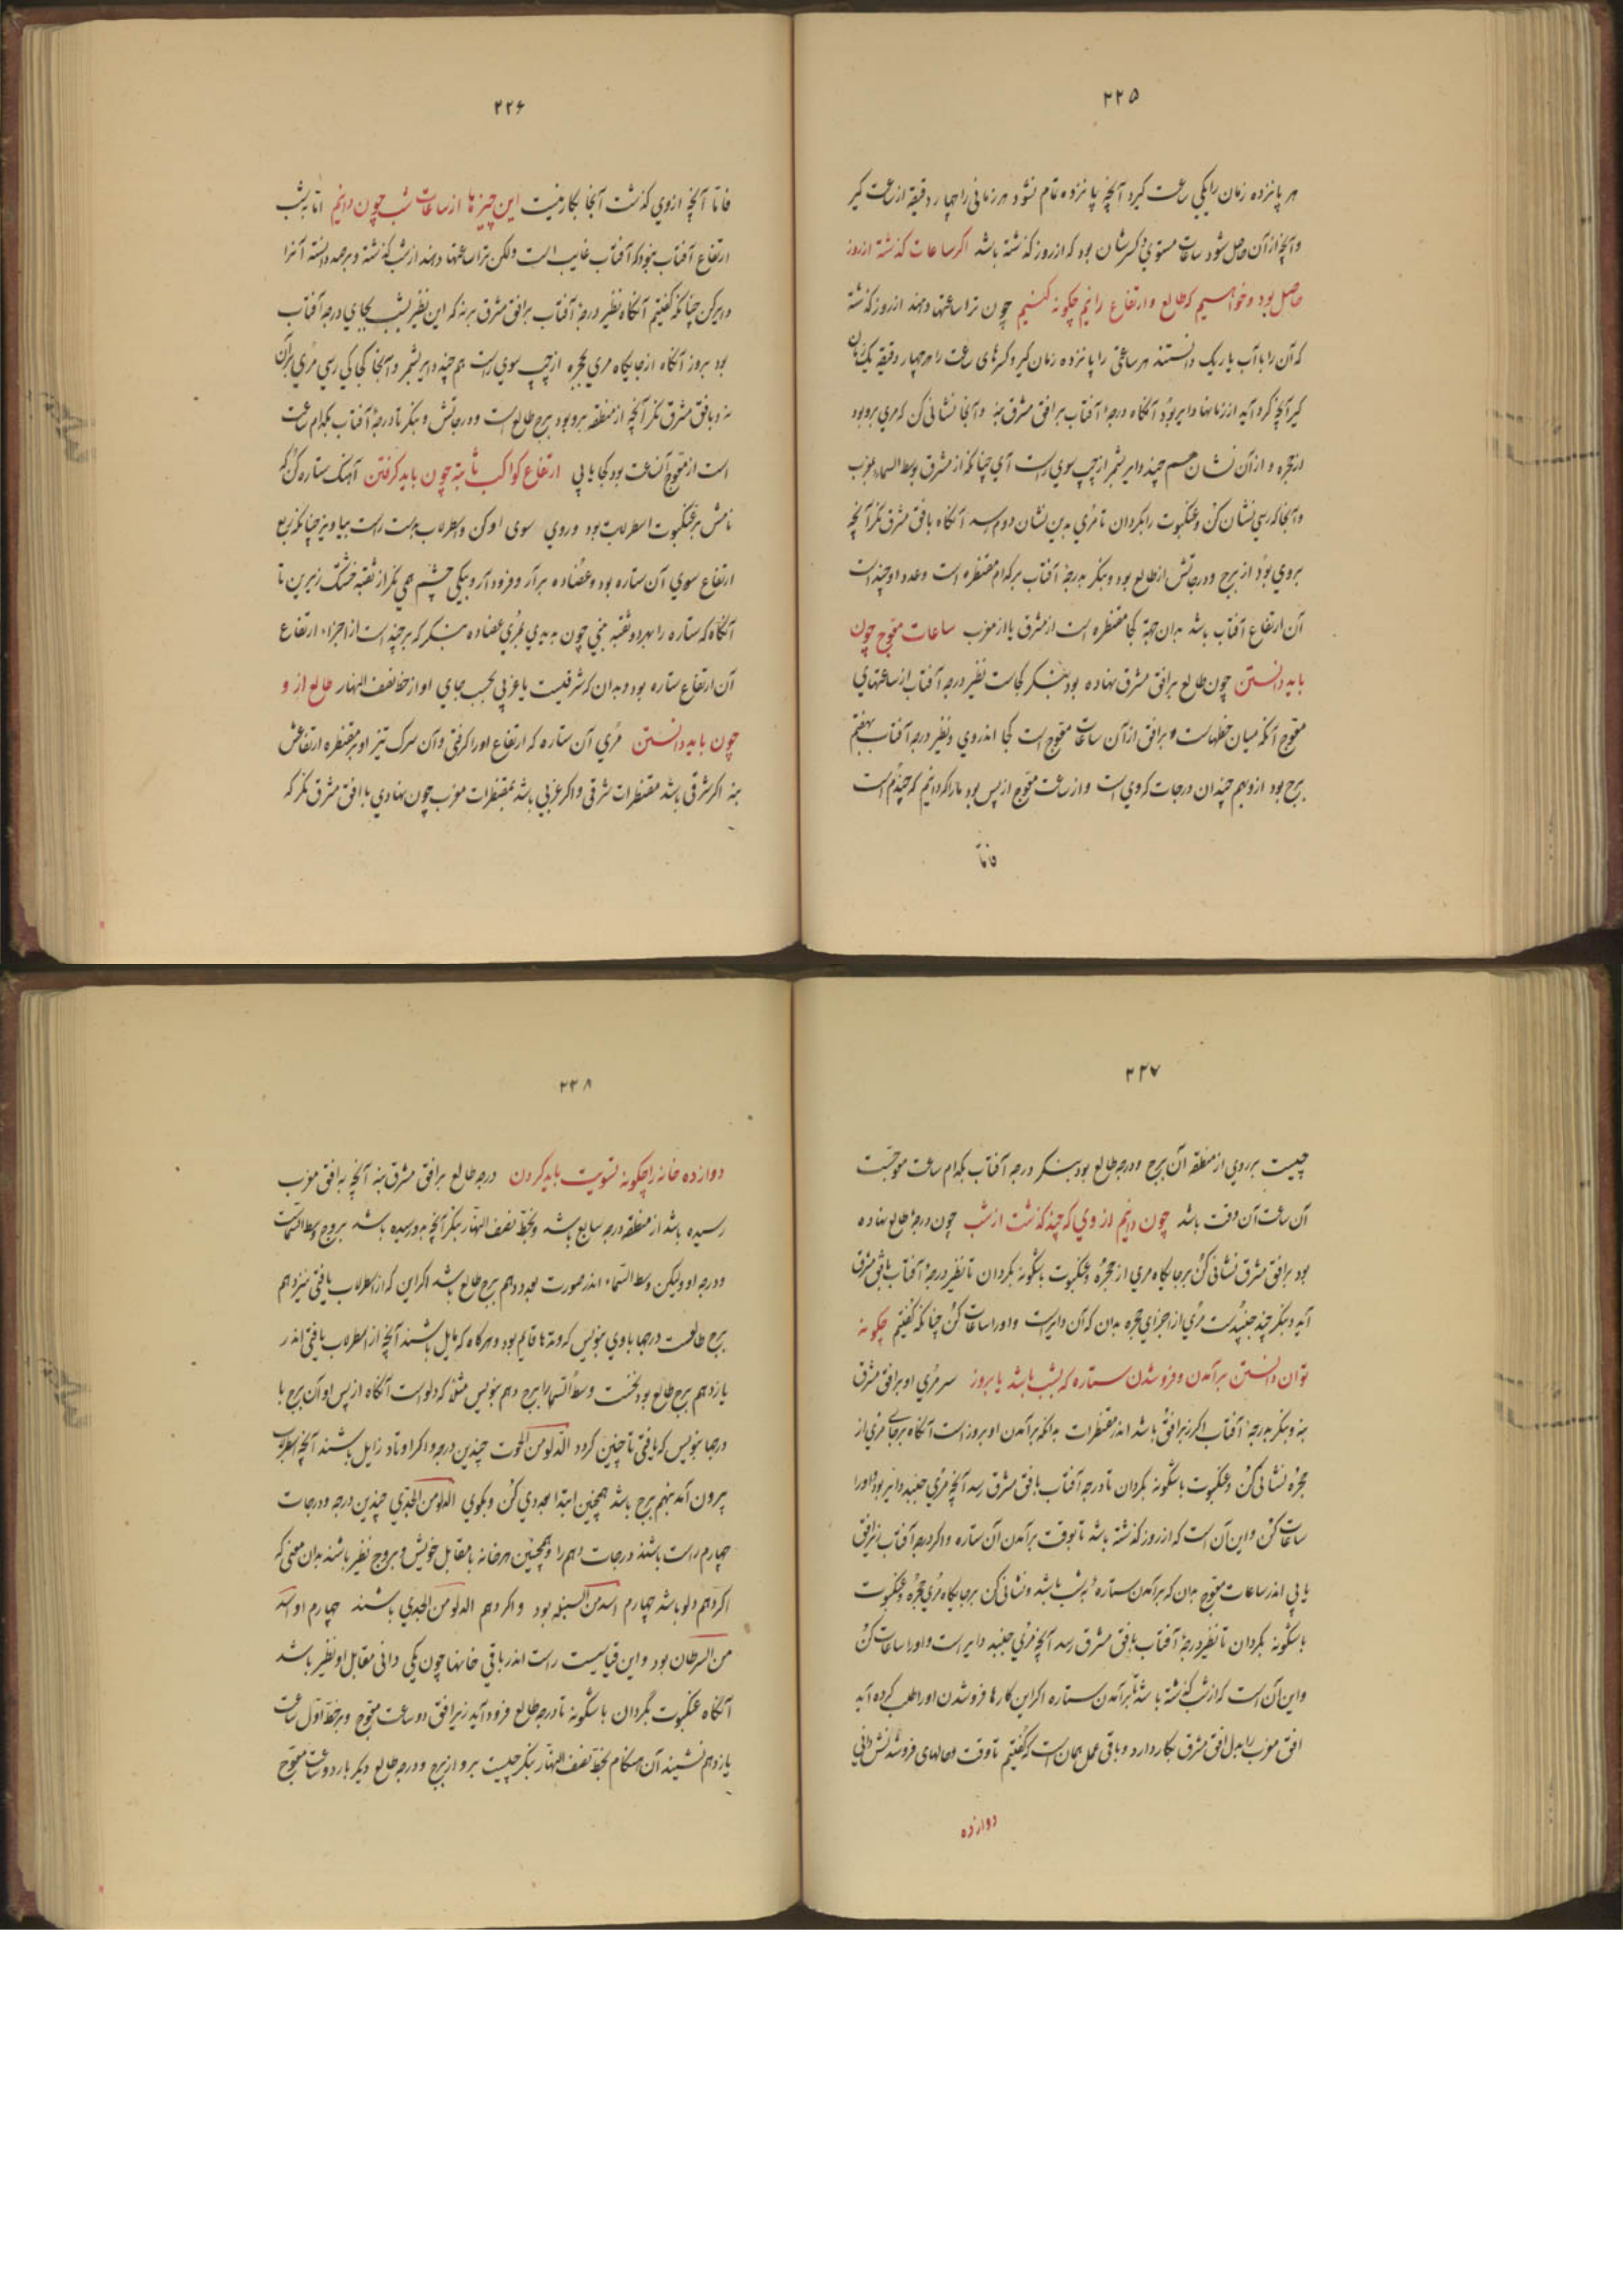 ۲۲۵
هر پانزده زمان را یکی ساعت گیرد آنچه پانزده تمام نشود هر زمانی را چهار دقیقه از ساعت گیر
وآنچه از آن حاصل شود ساعات مستوی وکسرشان بود که از روز گذشته باشد اکر ساعات گذشته از روز
حاصل بود وخواهیم که طالع وارتفاع دانیم چکونه کنیم چون ترا ساعتها دهند از روز گذشته
که آن را بآب یا ریک دانستند هر ساعتی را پانزده زمان گیر وکسرهای ساعت را هر چهار دقیقه یک زمان
گیر آنچه گرد آید از زمانها دایر بود آنگاه درجهٔ آفتاب بر افق مشرق بنه وآنجا نشانی کن که مری بروبود
از حجره واز آن نشان هم چند دایر بشمر از چپ سوی راست آی چنانکه از مشرق بوسط السماء بمغرب
وآنجا که رسی نشان کن وعنکبوت را بگردان تا مری بدین نشان دوم رسد آنگاه بافق مشرق نگر آنچه
بروی بود از برج ودرجاتش از طالع بود وبنگر بدرجهٔ آفتاب بر کدام مقنطره است وعدد او چند است
آن ارتفاع آفتاب باشد بدان جهة کجا مقنطره است از مشرق یا از مغرب ساعات معوج چون
باید دانستن چون طالع بر افق مشرق نهاده بود بنگر کجاست نظیر درجه آفتاب از ساعتهای
معوج آنکه میان خطهاست وبر افق از آن ساعات معوج است کجا اندروی ونظیر درجه آفتاب بهفتم
برج بود ازو هم چندان درجات که وی است واز ساعت معوج از پس بود باز کردانیم که چندم است
فاما
۲۲۶
فاما آنچه ازوی گذشت آنجا بکار نیست این چیزها از ساعات شب چون دانیم اما به شب
ارتفاع آفتاب نبود که آفتاب غایب است ولکن ترا ساعتها دهند از شب گذشته وبرجه دانسته آنرا
دایر کن چنانکه گفتیم آنگاه نظیر درجهٔ آفتاب بر افق مشرق برنه که این نظیر بشب بجای درجه آفتاب
بود بروز آنگاه از جایگاه مری بحجره از چپ سوی راست هم چند دایر بشمر وآنجا کجا که رسی مری برآن
نه وبافق مشرق نگر آنچه از منطقه بروبود برج طالع است ودرجاتش وبنگر تا درجهٔ آفتاب بکدام ساعت
است از معوج آن ساعت بود کجا یابی ارتفاع کواکب ثابته چون باید گرفتن آهنگ ستاره کن که
نامش بر عنکبوت اسطرلاب بود وروی سوی او کن واسطرلاب بدست راست بیاویز چنانکه ربع
ارتفاع سوی آن ستاره بود وعضاده برآر وفرودآر وبیکی چشم همی نگر از ثقبه خشتک زیرین تا
آنگاه که ستاره را بهر دو ثقبه ببینی چون بدیدی بمری عضاده بنگر که بر چند است از اجزاء ارتفاع
آن ارتفاع ستاره بود وبدان که شرقیست یا غربی بحسب جای او از خط نصف النهار طالع از و
چون باید دانستن مری آن ستاره که ارتفاع او را گرفتی وآن سرک تیز او بر مقنطره ارتفاعش
بنه اکر شرقی باشد مقنطرات شرقی واکر غربی باشد بمقنطرات مغرب چون نهادی باافق مشرق نگر که
۲۲۷
چیست برروی از منطقه آن برج ودرجه طالع بود بنگر درجه آفتاب بکدام ساعت معوجست
آن ساعت آن وقت باشد چون دانیم از وی که چند گذشت از شب چون درجهٔ طالع نهاده
بود بر افق مشرق نشانی کن بر جایگاه مری از حجره وعنکبوت باشگونه بگردان تا نظیر درجهٔ آفتاب بافق مشرق
آید وبنگر چند جنبیدست مری از اجزای حجره بدان که آن دایر است واورا ساعات کن چنانکه گفتیم چکونه
توان دانستن برآمدن وفروشدن ستاره که بشب باشد یا بروز سر مری او بر افق مشرق
بنه وبنگر بدرجهٔ آفتاب اکر زبر افق باشد اندر مقنطرات بدانکه برآمدن او بروز است آنگاه برجای مری از
حجره نشانی کن وعنکبوت باشگونه بگردان تا درجه آفتاب بافق مشرق رسد آنچه مری جنبد دایر بود واورا
ساعات کن واین آن است که از روز گذشته باشد تا بوقت برآمدن آن ستاره واکر درجه آفتاب زیر افق
یابی اندر ساعات معوج بدان که برآمدن ستاره بشب باشد ونشانی کن بر جایگاه مری حجره وعنکبوت
باشگونه بگردان تا نظیر درجهٔ آفتاب بافق مشرق رسد آنچه مری جنبد دایر است واورا ساعات کن
واین آن است که از شب گذشته باشد تا برآمدن ستاره اکر این کارها فروشدن اورا طلب کرده آید
افق مغرب را بدل افق مشرق بکار دارد وباقی عمل همان است که گفتیم تا وقت وحالهای فروشدنش دانی
دوازده
۲۲۸
دوازده خانه را چکونه تسویت باید کردن درجه طالع بر افق مشرق بنه آنچه به افق مغرب
رسیده باشد از منطقه درجه سابع باشد وبخط نصف النهار بنگر آنچه بدو رسیده باشد بروج وسط السماست
ودرجه او ولیکن وسط السماء اندر صورت بعدد دهم برج طالع باشد اکر این که از اسطرلاب یافتی نیز دهم
برج طالعست درجها باوی بنویس که وتدها قایم بود وهرگاه که مایل باشند آنچه از اسطرلاب یافتی اندر
یازدهم برج طالع بود نخست وسط السما را برج دهم بنویس مثلا که دلو است آنگاه از پس او آن برج با
درجها بنویس که یافتی تا چنین گردد الدلو من الحوت چندین درجه واکر اوتاد زایل باشند آنچه از اسطرلاب
بیرون آمد نهم برج باشد همچنین ابتدا بعدد دی کن وبگوی الدلو من الجدی چندین درجه ودرجات
چهارم راست باشند درجات دهم را وهمچنین هر خانه با مقابل خویش وبروج نظیر باشند بدان معنی که
اکر دهم دلو باشد چهارم اسد من السنبله بود واکر دهم الدلو من الجدی باشند چهارم او اسد
من السرطان بود واین قیاسیست راست اندر باقی خانها چون یکی دانی مقابل او نظیر باشد
آنگاه عنکبوت بگردان باشگونه تا درجه طالع فرود آید زیر افق دو ساعت معوج وبر خط اول ساعت
یازدهم نشیند آن هنگام بخط نصف النهار بنگر چیست برو از برج ودرجه طالع دیگر بار دو ساعت معوج